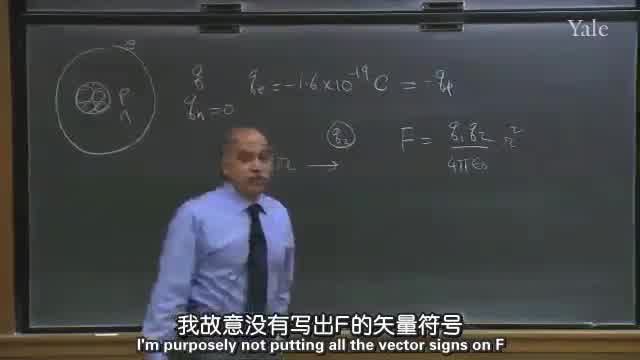 Yale
q
q_e = -1.6 × 10^-19 C = -q_p
p
n
q_n = 0
q_2
F = q_1 q_2 / 4πε_0 r^2
r →
我故意没有写出F的矢量符号
I'm purposely not putting all the vector signs on F